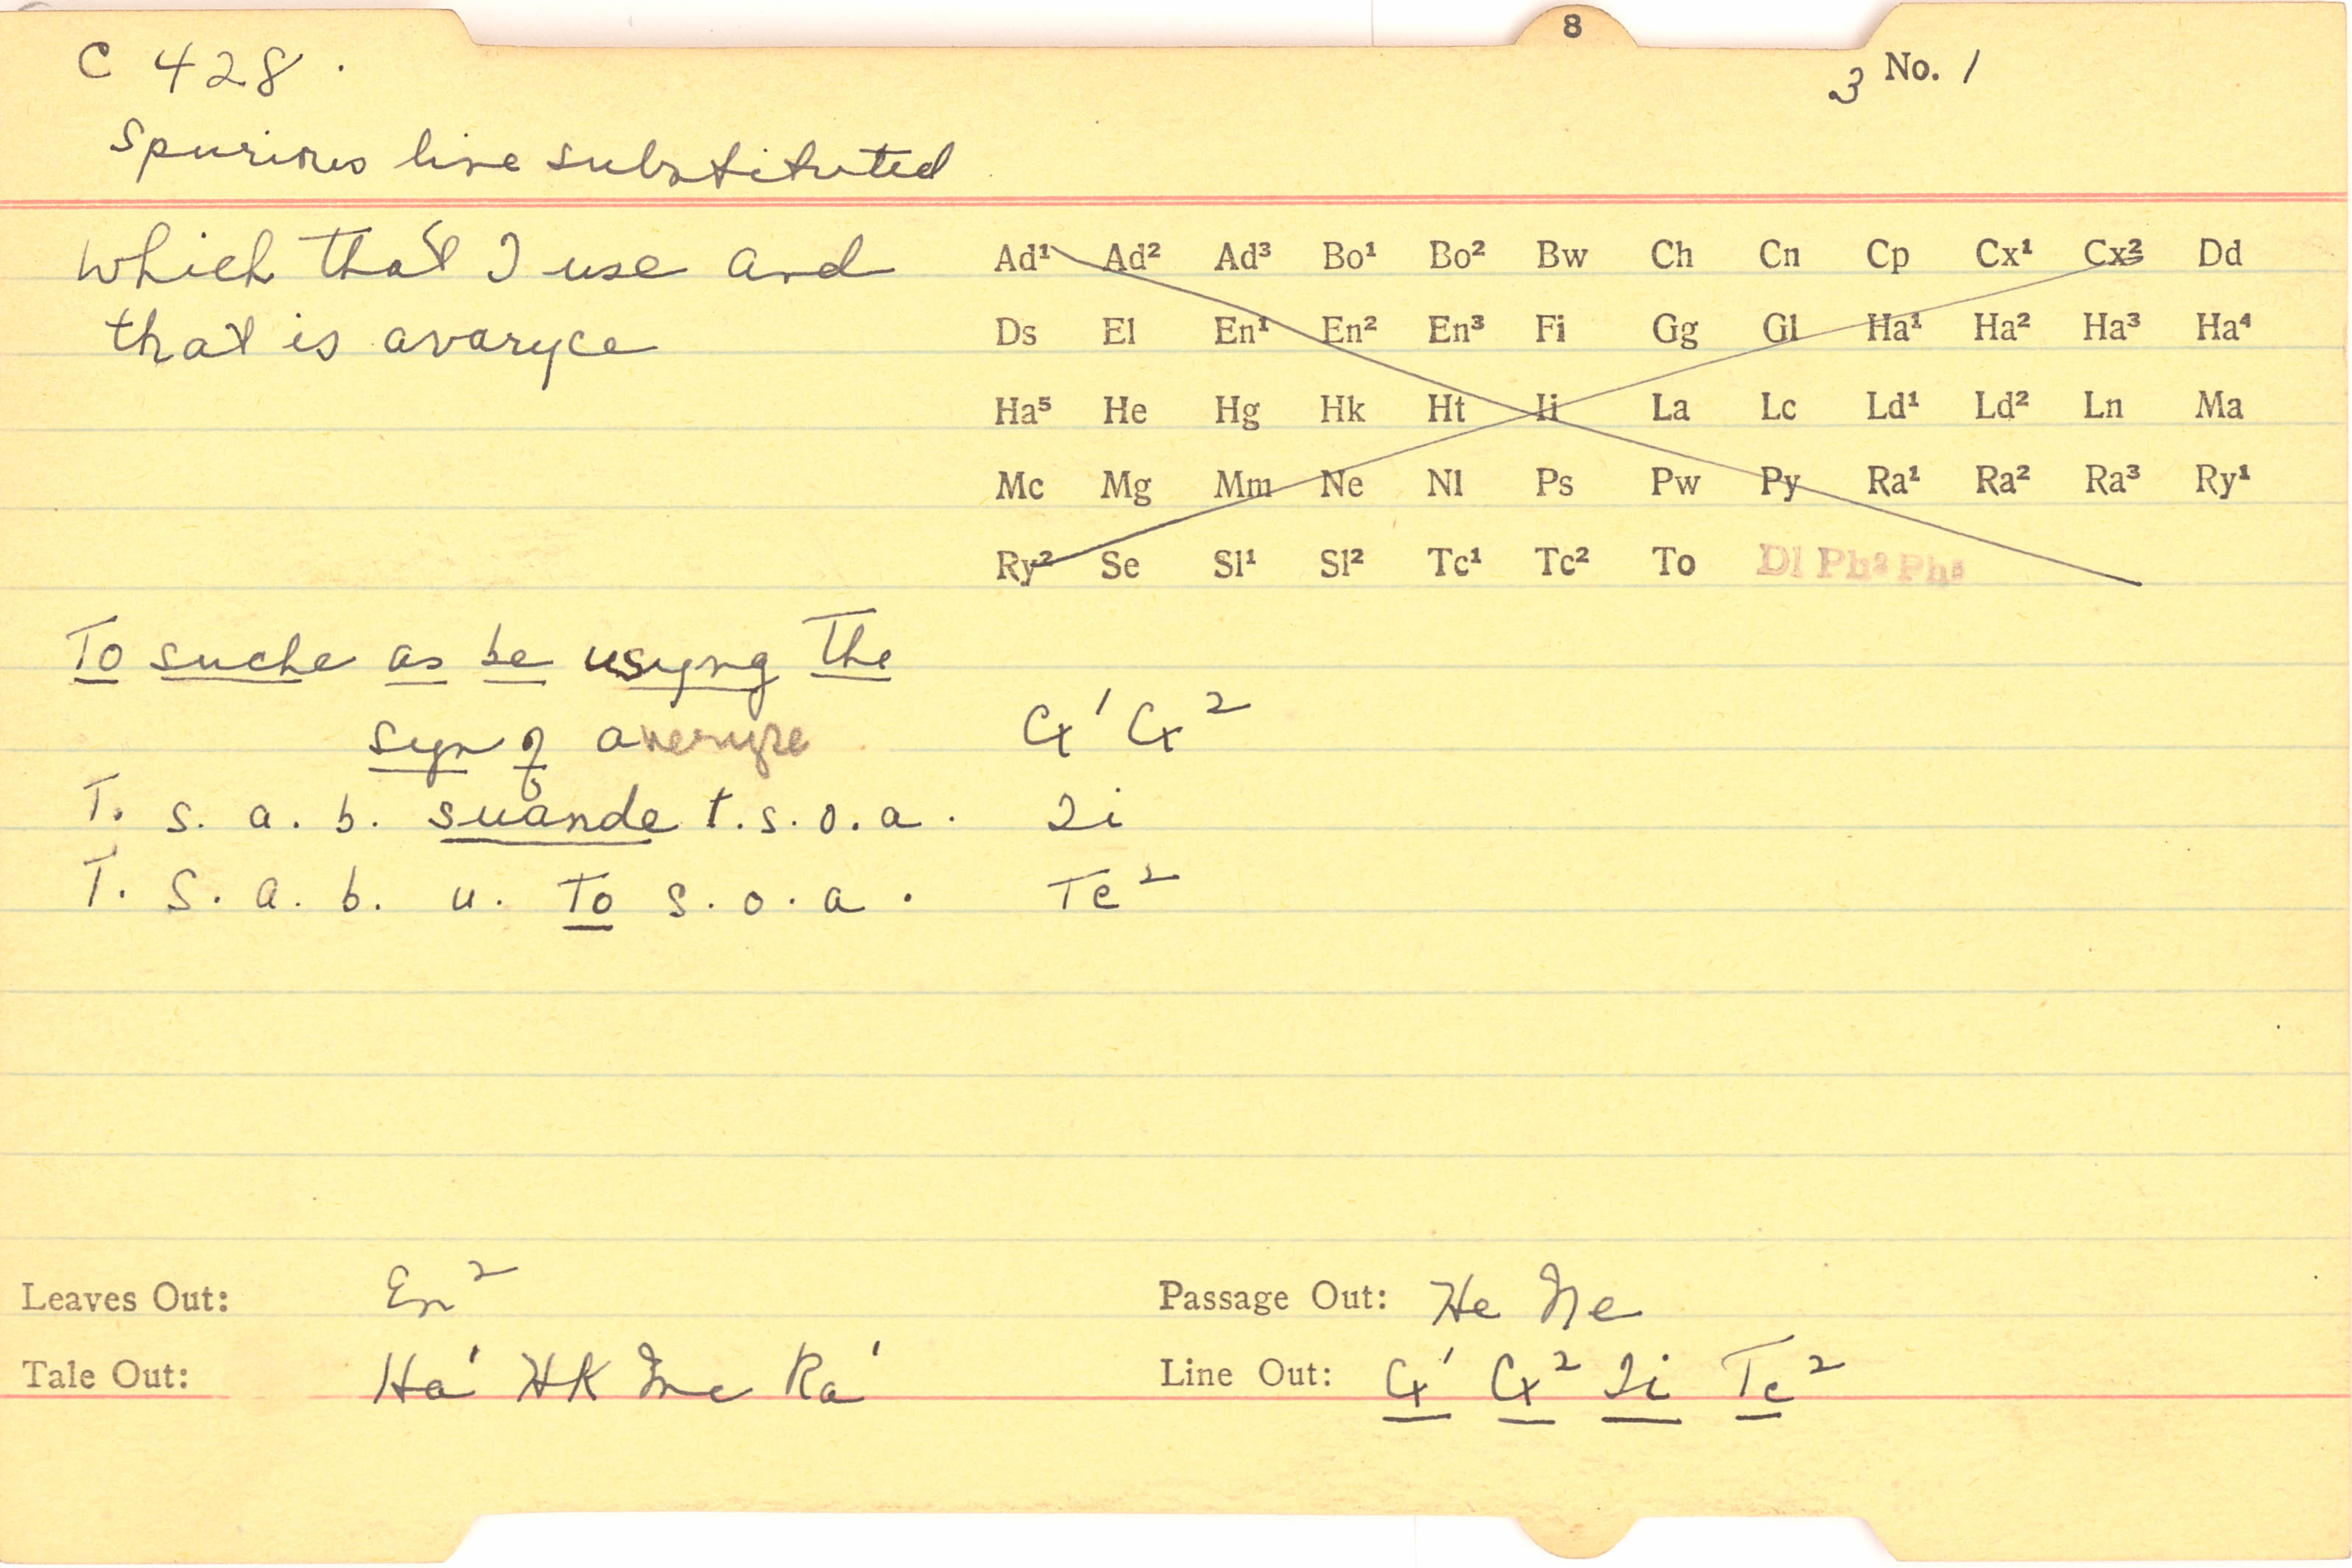 8
C 428.
3 No. 1
Spurious line substituted
which that I use and
that is avaryce
Ad¹ Ad² Ad³ Bo¹ Bo² Bw Ch Cn Cp Cx¹ Cx² Dd
Ds El En¹ En² En³ Fi Gg Gl Ha¹ Ha² Ha³ Ha⁴
Ha⁵ He Hg Hk Ht Ii La Lc Ld¹ Ld² Ln Ma
Mc Mg Mm Ne Nl Ps Pw Py Ra¹ Ra² Ra³ Ry¹
Ry² Se Sl¹ Sl² Tc¹ Tc² To Dl Ph² Ph³
To suche as be usyng the
syn of averyce Cx¹ Cx²
T. s. a. b. suande t. s. o. a. Ii
T. S. a. b. u. To s. o. a. Tc²
Leaves Out: En² Passage Out: He Ne
Tale Out: Ha¹ Hk Mc Ra¹ Line Out: Cx¹ Cx² Ii Tc²